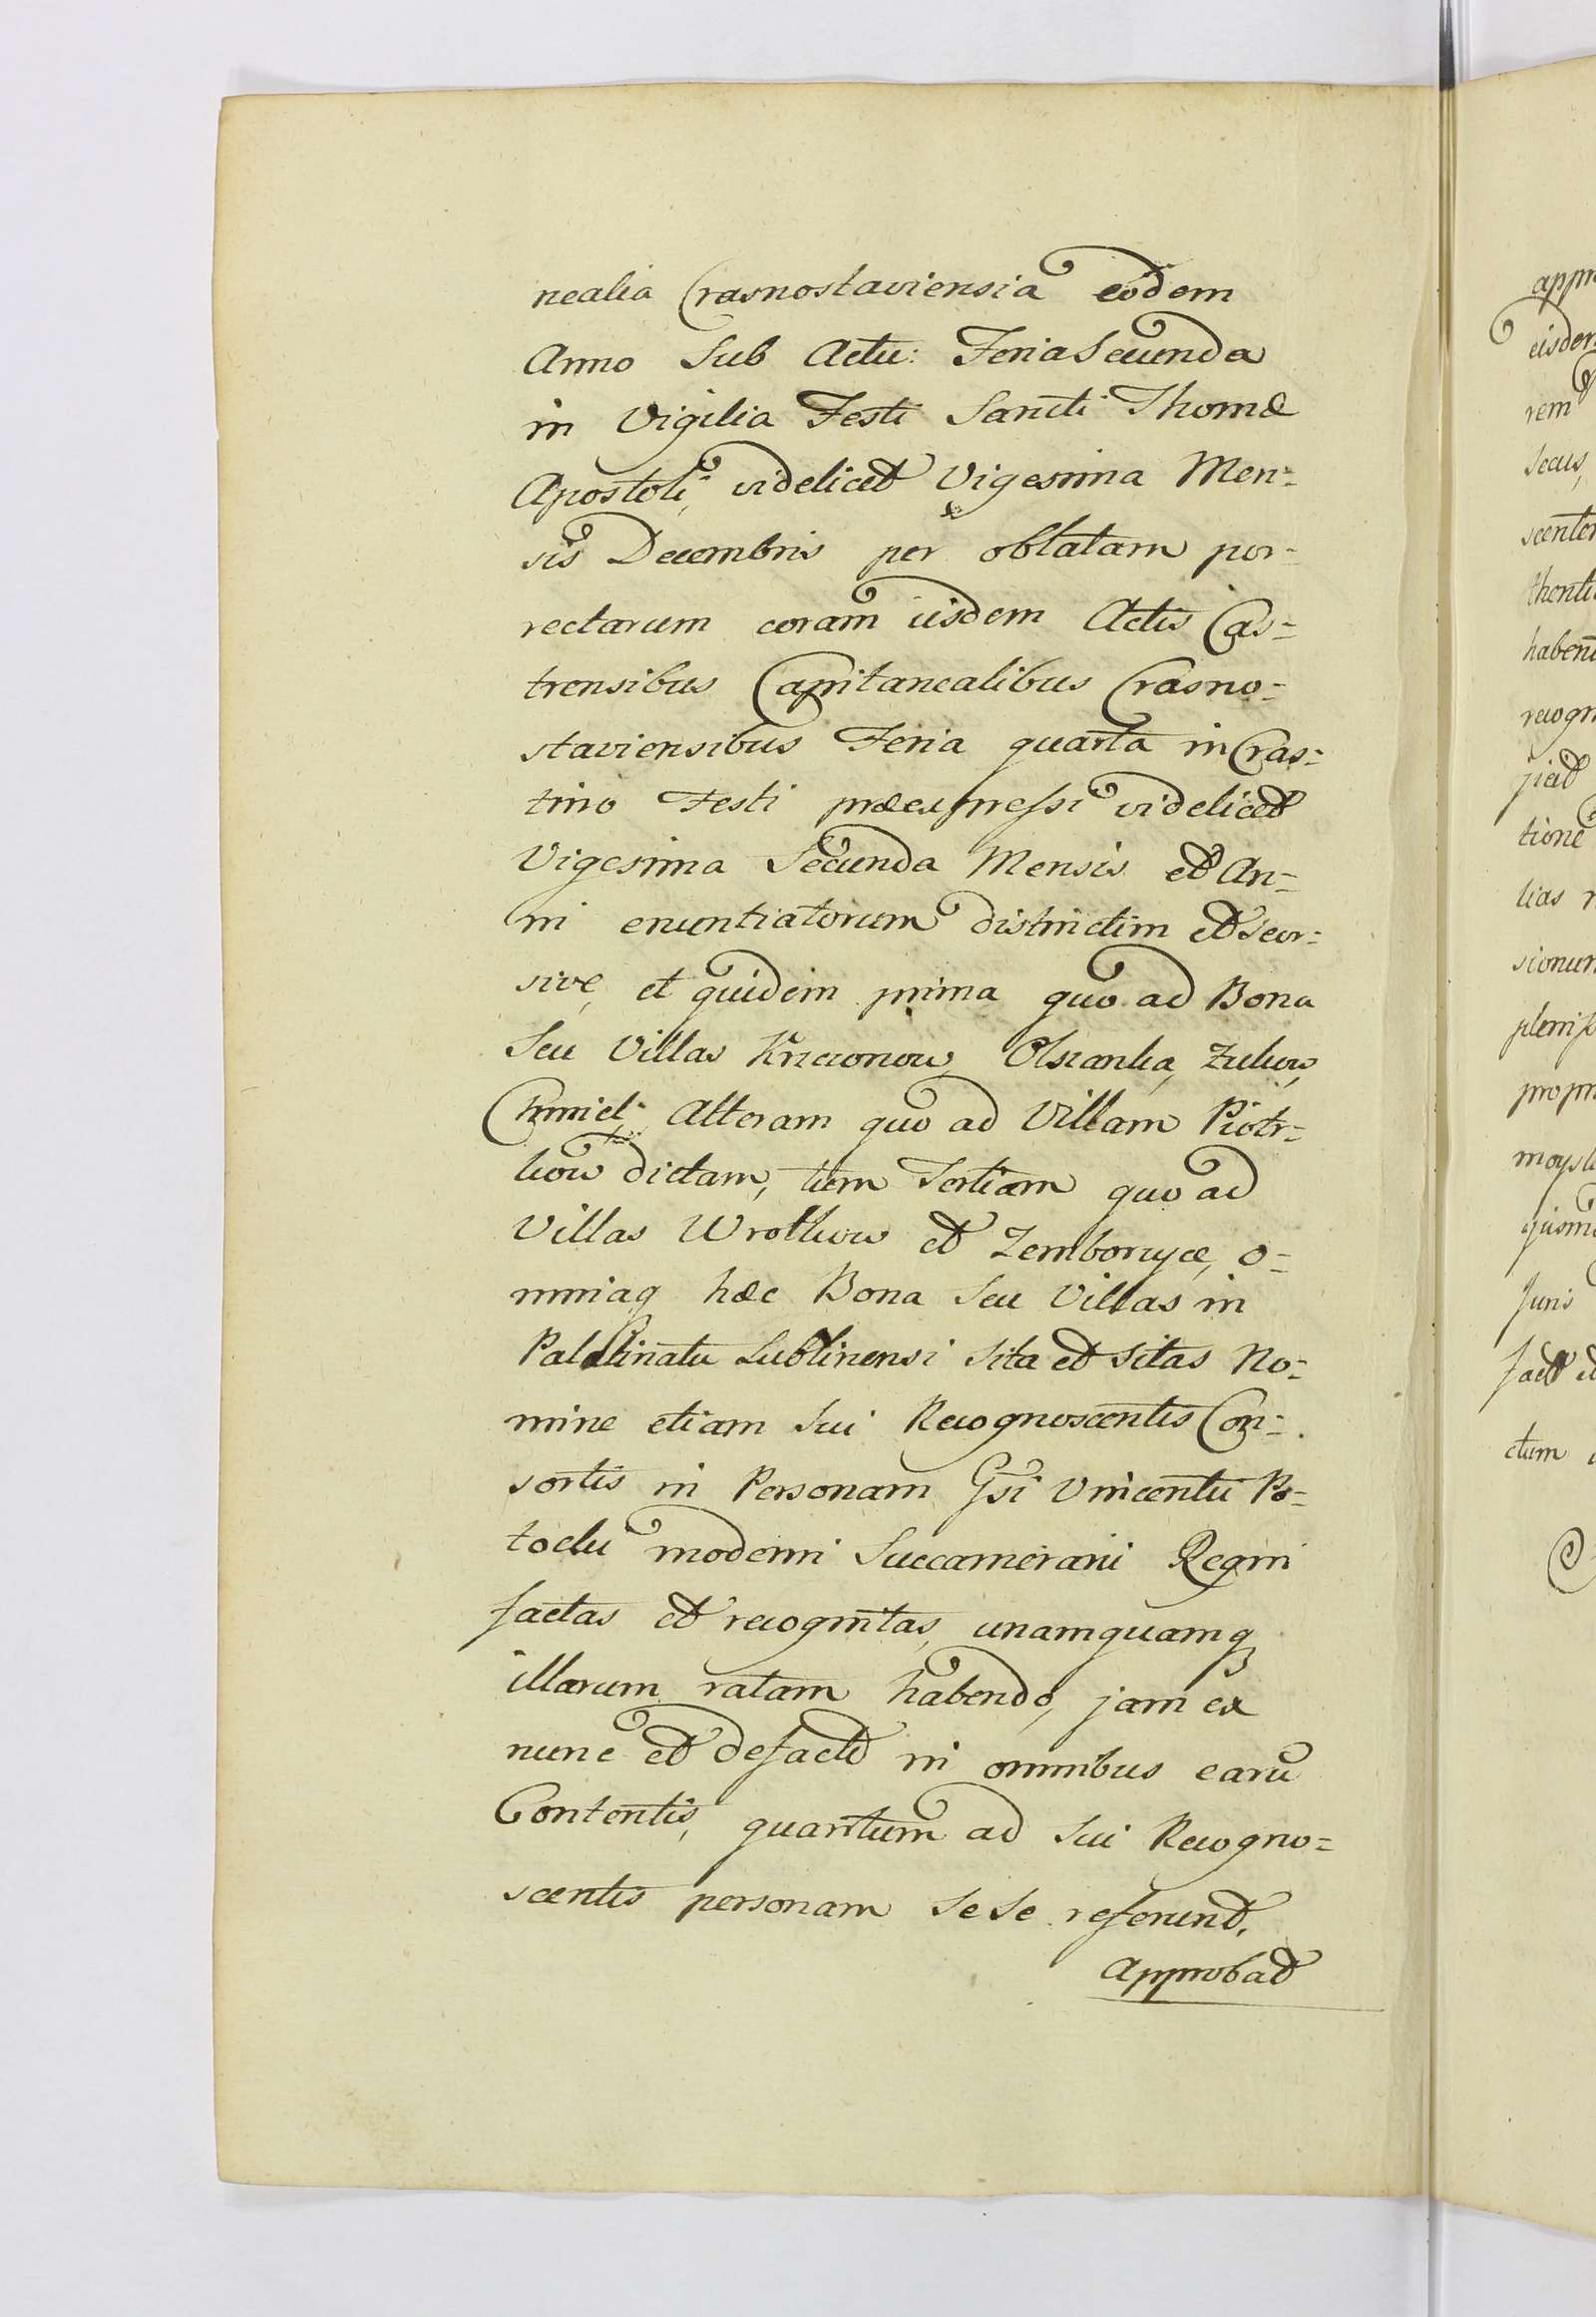 nealia Crasnostaviensia eodem
Anno Sub Actu: Feria Secunda
in Vigilia Festi Sancti Thomæ
Apostoli, videlicet Vigesima Men=
sis Decembris per oblatam por=
rectarum coram iisdem Actis Cas=
trensibus Capitanealibus Crasno=
staviensibus Feria quarta in Cras=
tino Festi præexpressi videlicet
Vigesima Secunda Mensis et An=
ni enuntiatorum distinctim et Seor=
sive, et quidem prima quo ad Bona
Seu Villas Krzczonow, Olszanka, Zukow,
Chmiel; Alteram quo ad Villam Piotr=
kow dictam, tum Tertiam quo ad
Villas Wrotkow et Zemborzyce, o=
mniaq hæc Bona Seu Villas in
Palatinatu Lublinensi Sita et sitas No=
mine etiam Sui Recognoscentis Con=
sortis in Personam Gsi Vincentii Po=
tocki moderni Succamerarii Regni
factas et recognitas, unamquamq
illarum ratam habendo, jam ex
nunc et defacto in omnibus earū
Contentis, quantum ad Sui Recogno=
scentis personam Se Se referund,
Approbat
appr
eisdem
rem
Secus,
scenter
thenti
haben
recogn
jicit
tione
lias r
sionum
pleniss
propr
moysk
Juris
ctum